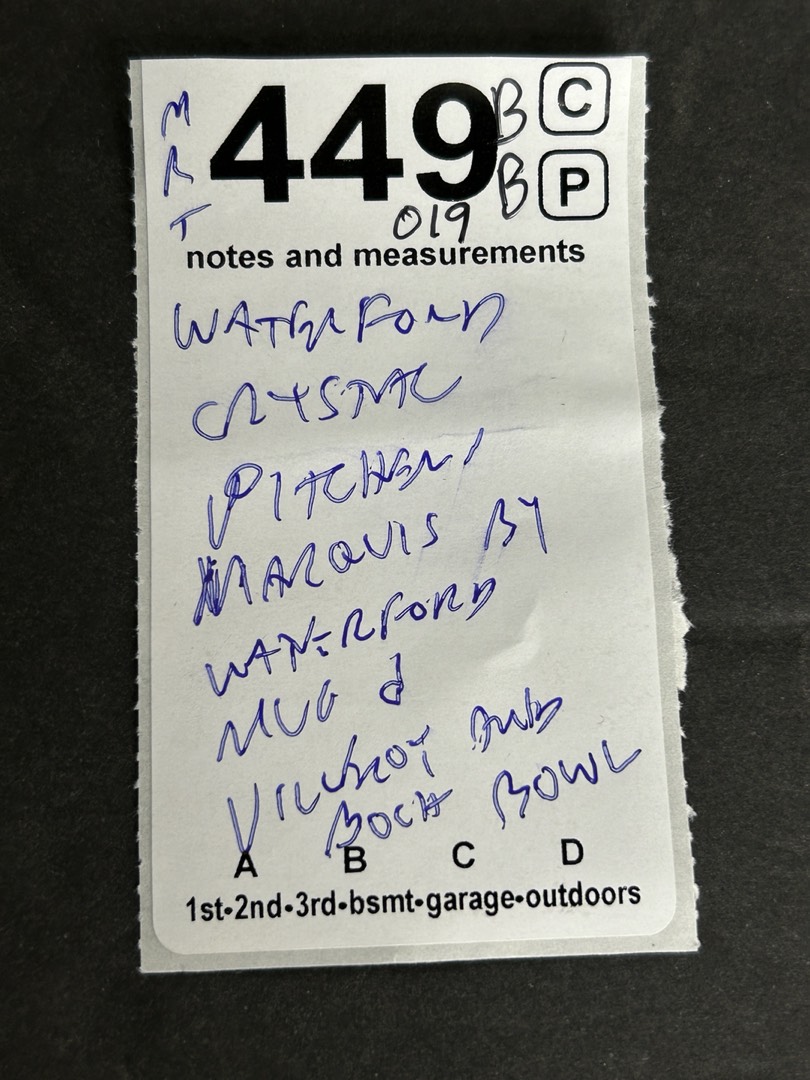 MRT
449
B C
B P
019
notes and measurements
WATERFORD
CRYSTAL
PITCHER,
MARQUIS BY
WATERFORD
MUG &
VILLEROY AND
BOCH BOWL
A B C D
1st•2nd•3rd•bsmt•garage•outdoors